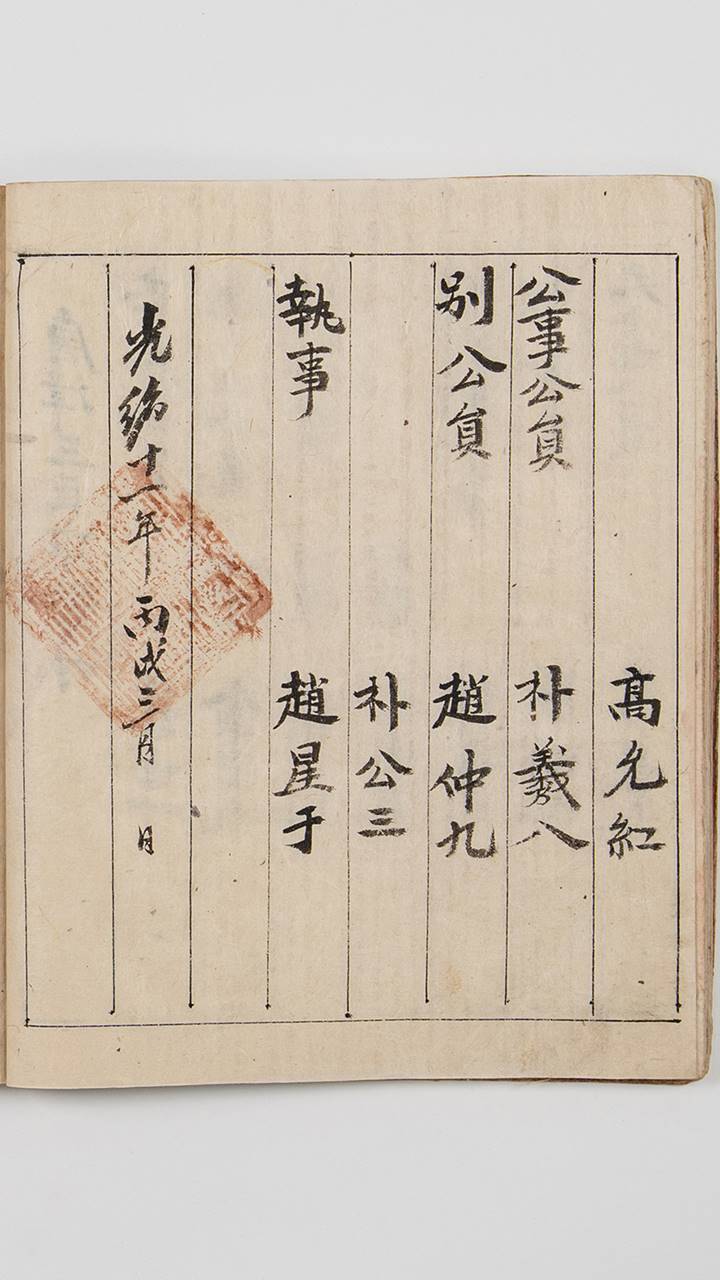 高允紅
公事公員 朴義八
別公員 趙仲九
朴公三
執事 趙星于
光緒十二年丙戌三月 日